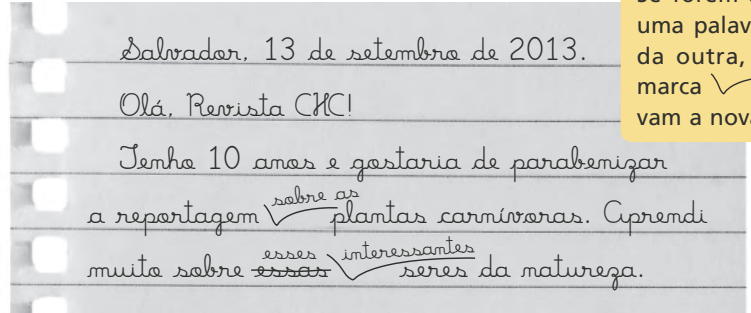 Se forem
uma palav
da outra,
marca
vam a nova
Salvador, 13 de setembro de 2013.
Olá, Revista CHC!
Tenho 10 anos e gostaria de parabenizar
sobre as
a reportagem plantas carnívoras. Aprendi
esses interessantes
muito sobre essas seres da natureza.